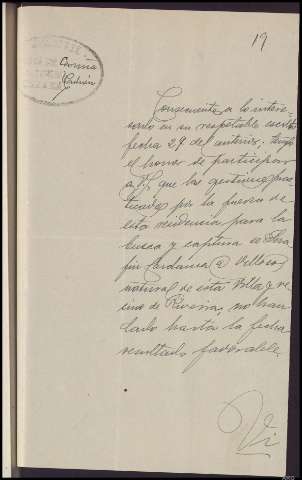 19
Consecuente a lo intere-
sado en su respetable escrito
fecha 29 del anterior; tengo
el honor de participar
a V. que las gestiones prac-
ticadas por la fuerza de
esta residencia para la
busca y captura de Sera-
fin Cardama (a) Velloso
natural de esta Villa y ve-
cino de Riveira, no han
dado hasta la fecha
resultado favorable.